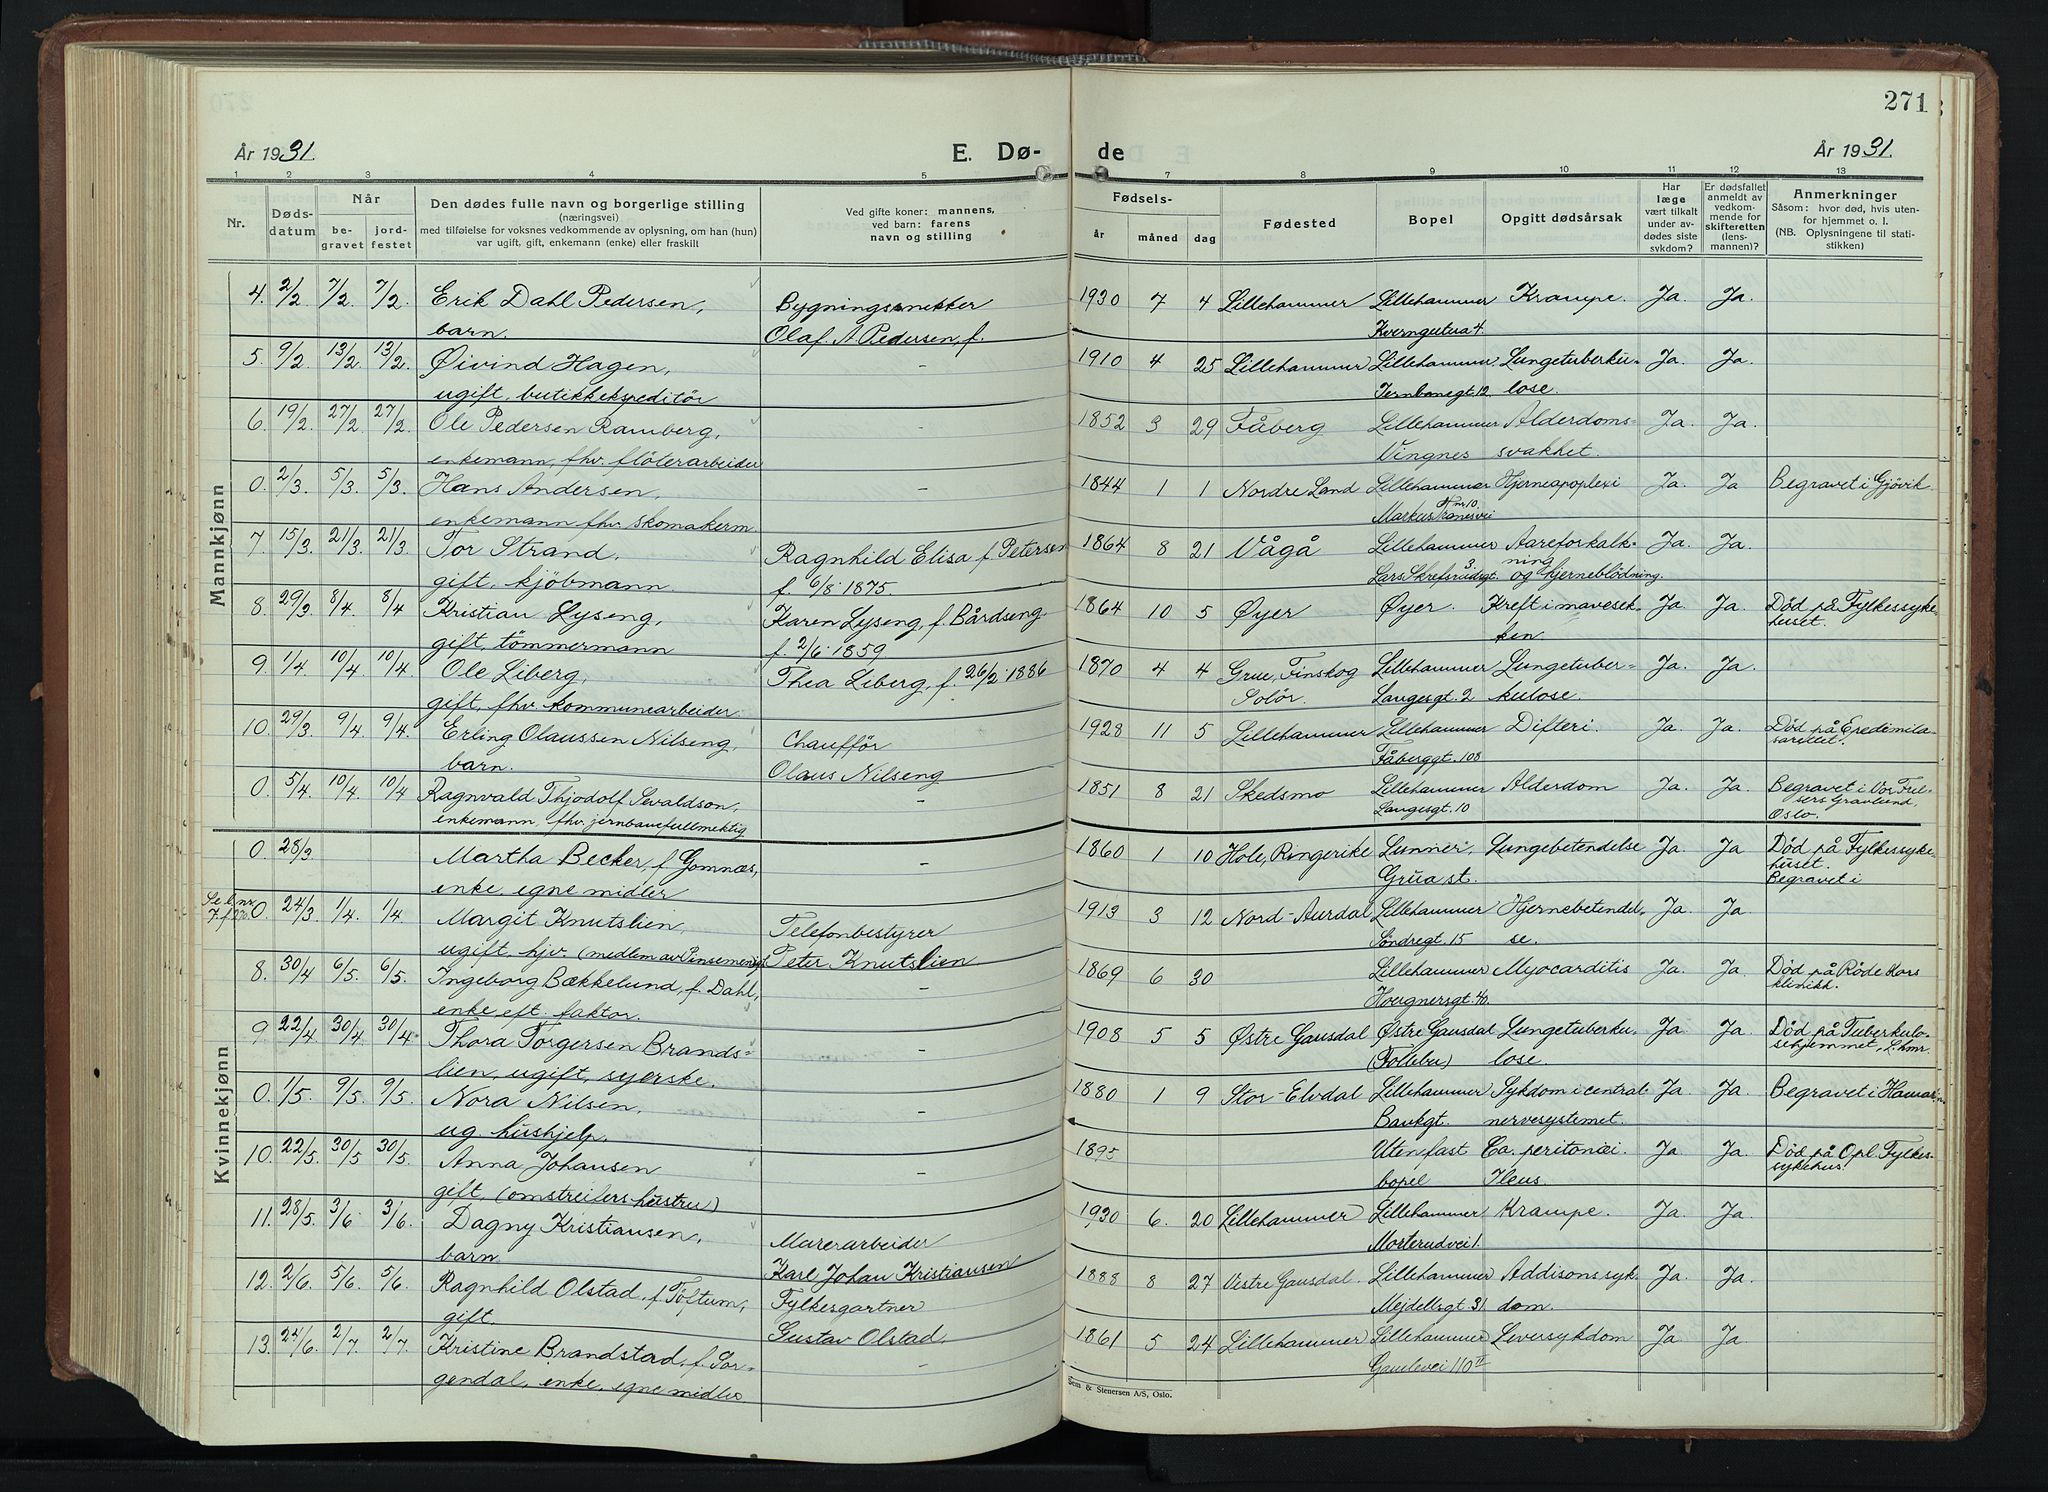 271
År 1931.
E. Dø-
de
År 1931.
1 2 3 4 5 7 8 9 10 11 12 13
Nr.
Døds-
datum
Når
be-
gravet
jord-
festet
Den dødes fulle navn og borgerlige stilling
(næringsvei)
med tilføielse for voksnes vedkommende av oplysning, om han (hun)
var ugift, gift, enkemann (enke) eller fraskilt
Ved gifte koner: mannens,
ved barn: farens
navn og stilling
Fødsels-
år
måned
dag
Fødested
Bopel
Opgitt dødsårsak
Har
læge
vært tilkalt
under av-
dødes siste
sykdom?
Er dødsfallet
anmeldt av
vedkom-
mende for
skifteretten
(lens-
mannen)?
Anmerkninger
Såsom: hvor død, hvis uten-
for hjemmet o. l.
(NB. Oplysningene til stati-
stikken)
Mannkjønn
4. 2/2 7/2. 7/2. Erik Dahl Pedersen, Bygningssnekker 1930 7 4 Lillehammer Lillehammer Krampe. Ja. Ja.
barn. Olaf A. Pedersen, f. Kverngutua 4.
5. 9/2 13/2. 13/2. Øivind Hagen, - 1910 4 25 Lillehammer Lillehammer. Lungetuberku- Ja. Ja.
ugift, butikkekspeditör Jernbanegt. 12. lose.
6. 19/2. 27/2. 27/2. Ole Pedersen Ramberg, - 1852 3 29 Fåberg Lillehammer Alderdoms- Ja. Ja.
enkemann, fhv. flöterarbeider Vingnes svakhet.
0. 2/3. 5/3. 5/3. Hans Andersen, - 1844 1 1 Nordre Land Lillehammer Hjerneapoplexi Ja. Ja Begravet i Gjövik.
enkemann fhv. skomakerm. Markus Tranesvei nr 10.
7. 15/3. 21/3. 21/3. Tor Strand, Ragnhild Elisa f. Petersen 1864 8 21 Vågå Lillehammer Aareforkalk- Ja. Ja.
gift, kjöbmann. f. 6/8. 1875 Lars Skrefsrudsgt. 3. ning og hjerneblödning.
8. 29/3 8/4. 8/4 Kristian Lyseng, Karen Lyseng, f. Bårdseng. 1864 10 5 Øyer Øyer. Kreft i mavesek- Ja. Ja. Död på Fylkessyke-
gift, tömmermann f. 2/6. 1859. ken huset.
9 1/4 10/4 10/4 Ole Liberg, Thea Liberg, f. 26/2. 1886 1870 4 4 Grue, Finskog Lillehammer Lungetuber- Ja. Ja.
gift, fhv. kommunearbeider. Solör. Langesgt. 2 kulose.
10. 29/3 9/4. 9/4. Erling Olaussen Nilseng, Chaufför 1928 11 5 Lillehammer Lillehammer Difteri. Ja. Ja. Död på Epedemila-
barn. Olaus Nilseng Fåberggt. 108 sarettet.
0. 5/4. 10/4. 10/4 Ragnvald Thjodolf Sevaldson, - 1851 8 21 Skedsmo Lillehammer Alderdom Ja. Ja. Begravet i Vor Frel-
enkemann, fhv. jernbanefullmektig Langesgt. 10 sers Gravlund, Oslo.
Kvinnekjønn
0. 28/3 Martha Becker, f. Gomnæs, - 1860 1 10 Hole, Ringerike Lunner, Lungebetendelse Ja. Ja Död på Fylkessyke-
enke, egne midler Grua st. huset. Begravet i
Se l.nr. 7. f. 270. 0. 24/3 1/4. 1/4. Margit Knutslien, Telefonbestyrer 1913 3 12 Nord-Aurdal Lillehammer Hjernebetendel- Ja. Ja
ugift, hjv. (medlem av Pinsemenigh. Peter Knutslien Söndregt. 15 se.
8. 30/4 6/5. 6/5. Ingeborg Bækkelund, f. Dahl, - 1869 6 30 Lillehammer Myocarditis Ja. Ja. Död på Röde Kors
enke eft. faktor. 40. klinikk.
9. 22/4 30/4 30/4. Thora Torgersen Brands- - 1908 5 5 Østre Gausdal Østre Gausdal Lungetuberku- Ja. Ja Död på Tuberkulo-
lien, ugift, syerske. (Follebu) lose. sehjemmet, L.hmr.
0. 1/5. 9/5. 9/5. Nora Nilsen, - 1880 1 9 Stor-Elvdal Lillehammer Sykdom i central- Ja Ja Begravet i Hamar.
ug. hushjelp. Bankgt. nervesystemet.
10. 22/5. 30/5 30/5. Anna Johansen - 1895 Uten fast Ca. peritonæi. Ja. Ja. Död på Opl. Fylkes-
gift, (omstreifers hustru) bopel Ileus sykehus.
11. 28/5. 3/6 3/6. Dagny Kristiansen, Murerarbeider 1930 6. 20 Lillehammer Lillehammer Krampe. Ja. Ja.
barn. Karl Johan Kristiansen Morterudvei 1.
12. 2/6. 5/6. 5/6. Ragnhild Olstad, f. Töftum, Fylkesgartner 1888 8 27 Vestre Gausdal. Lillehammer Addisons syk- Ja. Ja.
gift. Gustav Olstad. Mejdellsgt. 31 dom.
13. 24/6 2/7. 2/7. Kristine Brandstad, f. Sor- - 1861 5 24 Lillehammer Lillehammer Leversykdom Ja Ja
gendal, enke, egne midler. Gamlevei 110 II
Sem & Stenersen A/S, Oslo.